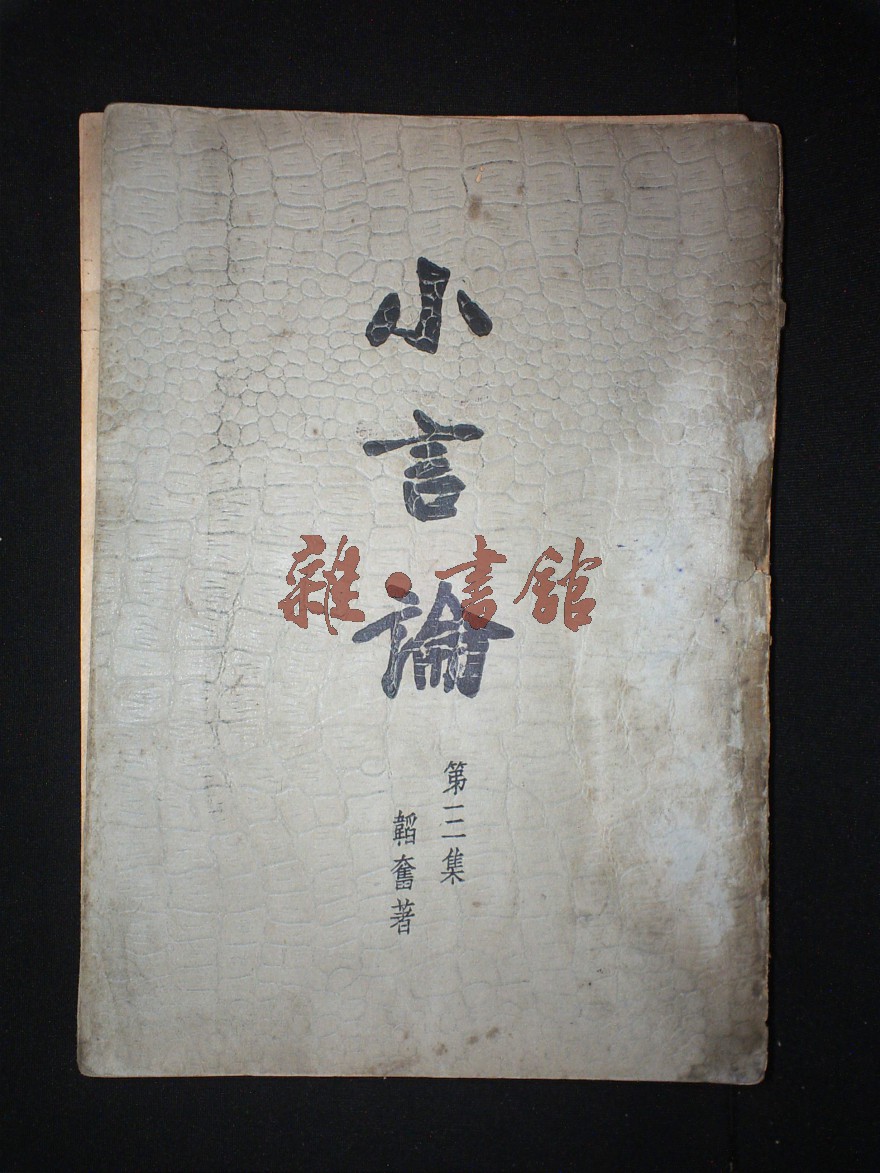 小言論
第三集
韜奮著
雜·書館